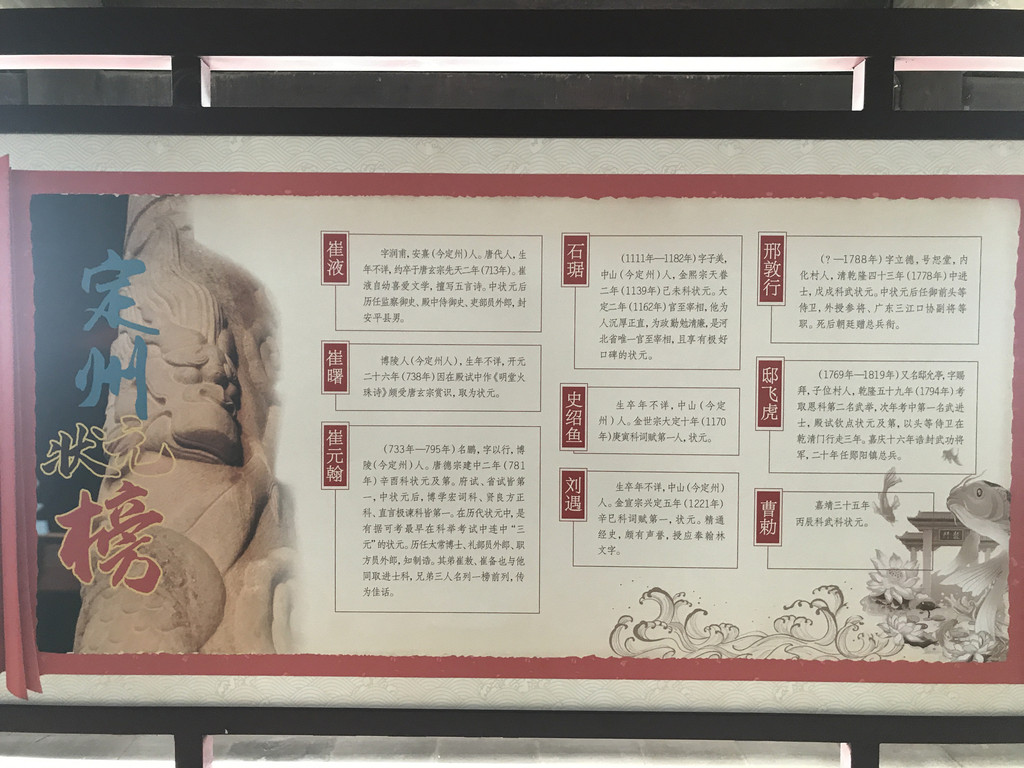 定州
状元
榜
崔液
字润甫，安熹（今定州）人。唐代人，生
年不详，约卒于唐玄宗先天二年（713年）。崔
液自幼喜爱文学，擅写五言诗。中状元后
历任监察御史、殿中侍御史、吏部员外郎，封
安平县男。
崔曙
博陵人（今定州人），生年不详，开元
二十六年（738年）因在殿试中作《明堂火
珠诗》颇受唐玄宗赏识，取为状元。
崔元翰
（733年—795年）名鹏，字以行，博
陵（今定州）人。唐德宗建中二年（781
年）辛酉科状元及第。府试、省试皆第
一，中状元后，博学宏词科、贤良方正
科、直言极谏科皆第一。在历代状元中，是
有据可考最早在科举考试中连中“三
元”的状元。历任太常博士、礼部员外郎、职
方员外郎，知制诰。其弟崔敖、崔备也与他
同取进士科，兄弟三人名列一榜前列，传
为佳话。
石琚
（1111年—1182年）字子美，
中山（今定州）人，金熙宗天眷
二年（1139年）己未科状元。大
定二年（1162年）官至宰相，他为
人沉厚正直，为政勤勉清廉，是河
北省唯一官至宰相，且享有极好
口碑的状元。
史绍鱼
生卒年不详，中山（今定
州）人。金世宗大定十年（1170
年）庚寅科词赋第一人，状元。
刘遇
生卒年不详，中山（今定州）
人。金宣宗兴定五年（1221年）
辛巳科词赋第一，状元。精通
经史，颇有声誉，授应奉翰林
文字。
邢敦行
（？—1788年）字立德，号旭堂，内
化村人，清乾隆四十三年（1778年）中进
士，戊戌科武状元。中状元后任御前头等
侍卫，外授参将、广东三江口协副将等
职。死后朝廷赠总兵衔。
邸飞虎
（1769年—1819年）又名邸允亭，字赐
拜，子位村人，乾隆五十九年（1794年）考
取恩科第二名武举，次年考中第一名武进
士，殿试钦点状元及第，以头等侍卫在
乾清门行走三年。嘉庆十六年诰封武功将
军，二十年任郧阳镇总兵。
曹勅
嘉靖三十五年
丙辰科武科状元。